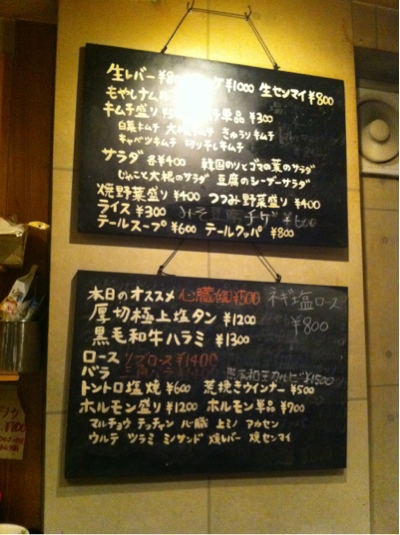 生レバー ¥1000 生センマイ ¥800
もやしナムル
キムチ盛り 単品 ¥300
白菜キムチ 大根キムチ きゅうりキムチ
キャベツキムチ 切り干しキムチ
サラダ 各¥400 韓国のりとゴマの葉のサラダ
じゃこと大根のサラダ 豆腐のシーザーサラダ
焼野菜盛り ¥400 つつみ野菜盛り ¥400
ライス ¥300 チゲ ¥600
テールスープ ¥600 テールクッパ ¥800
本日のオススメ 心臓 ¥500 ネギ塩ロース
厚切極上塩タン ¥1200 ¥800
黒毛和牛ハラミ ¥1300
ロース リブロース ¥1400
バラ ¥1500
トントロ塩焼 ¥600 荒挽きウインナー ¥500
ホルモン盛り ¥1200 ホルモン単品 ¥700
マルチョウ テッチャン 心臓 上ミノ アカセン
ウルテ ツラミ ミノサンド 焼レバー 焼センマイ